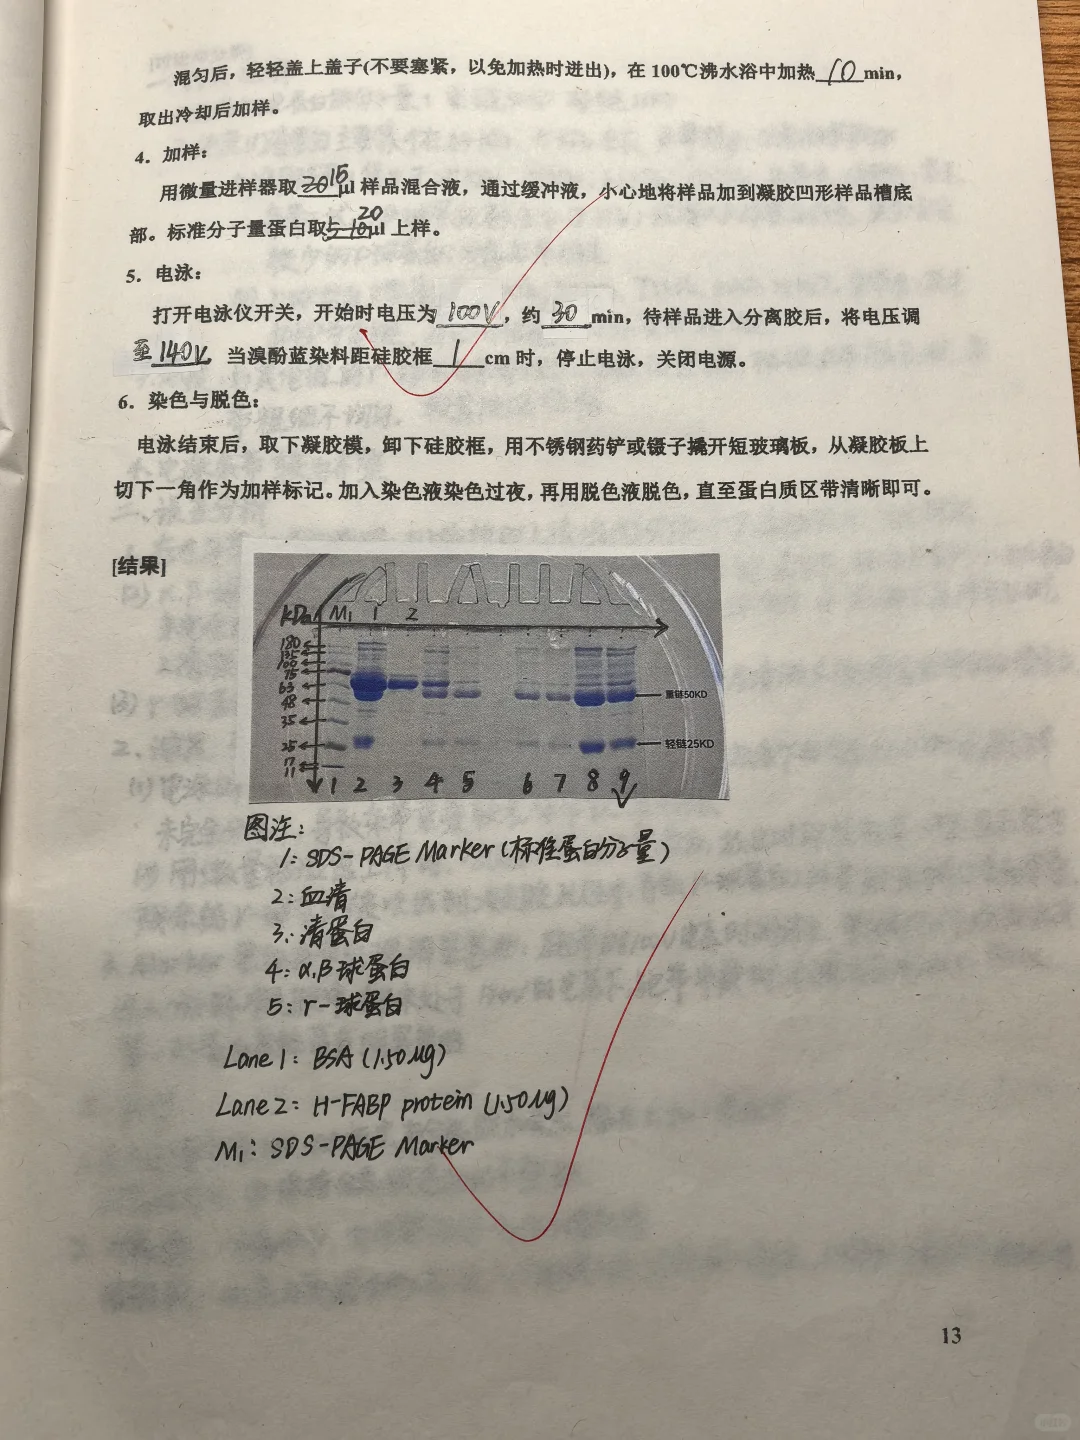 混匀后，轻轻盖上盖子(不要塞紧，以免加热时迸出)，在 100℃沸水浴中加热 10 min，
取出冷却后加样。
4．加样：
用微量进样器取 20 15 μl 样品混合液，通过缓冲液，小心地将样品加到凝胶凹形样品槽底
部。标准分子量蛋白取 5-10 20 μl 上样。
5．电泳：
打开电泳仪开关，开始时电压为 100V ，约 30 min，待样品进入分离胶后，将电压调
至 140V。当溴酚蓝染料距硅胶框 1 cm 时，停止电泳，关闭电源。
6．染色与脱色：
电泳结束后，取下凝胶模，卸下硅胶框，用不锈钢药铲或镊子撬开短玻璃板，从凝胶板上
切下一角作为加样标记。加入染色液染色过夜，再用脱色液脱色，直至蛋白质区带清晰即可。
[结果]
kDa M1 1 2
180
135
100
75
63
48
35
25
17
11
重链50KD
轻链25KD
1 2 3 4 5 6 7 8 9
图注：
1: SDS-PAGE Marker (标准蛋白分子量)
2: 血清
3: 清蛋白
4: α,β球蛋白
5: γ-球蛋白
Lane 1: BSA (1.50μg)
Lane 2: H-FABP protein (1.50μg)
M1: SDS-PAGE Marker
13